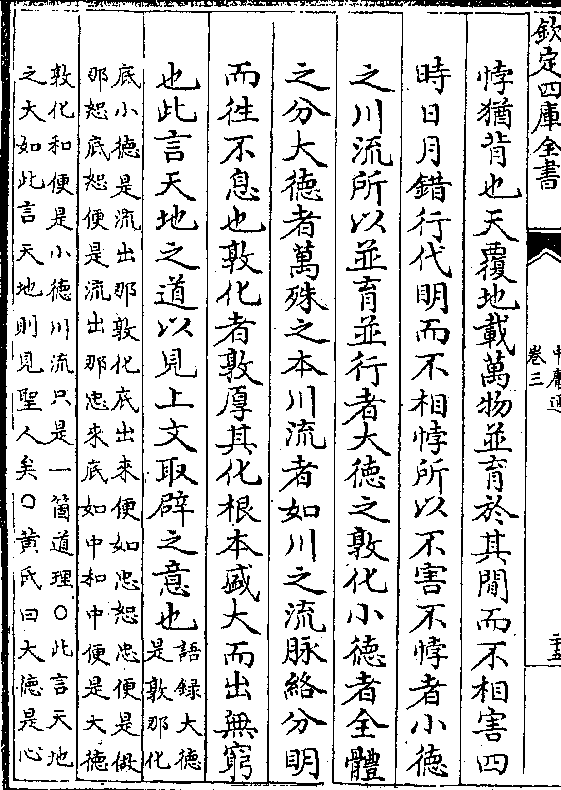 欽定四庫全書
中庸通
卷三
二十五
悖猶背也天覆地載萬物並育於其閒而不相害四
時日月錯行代明而不相悖所以不害不悖者小德
之川流所以並育並行者大德之敦化小德者全體
之分大德者萬殊之本川流者如川之流脉絡分明
而徃不息也敦化者敦厚其化根本盛大而出無窮
也此言天地之道以見上文取辟之意也
語録大德
是敦那化
底小德是流出那敦化底出來便如忠恕忠便是做
那恕底恕便是流出那忠來底如中和中便是大德
敦化和便是小德川流只是一箇道理○此言天地
之大如此言天地則見聖人矣○黄氏曰大德是心